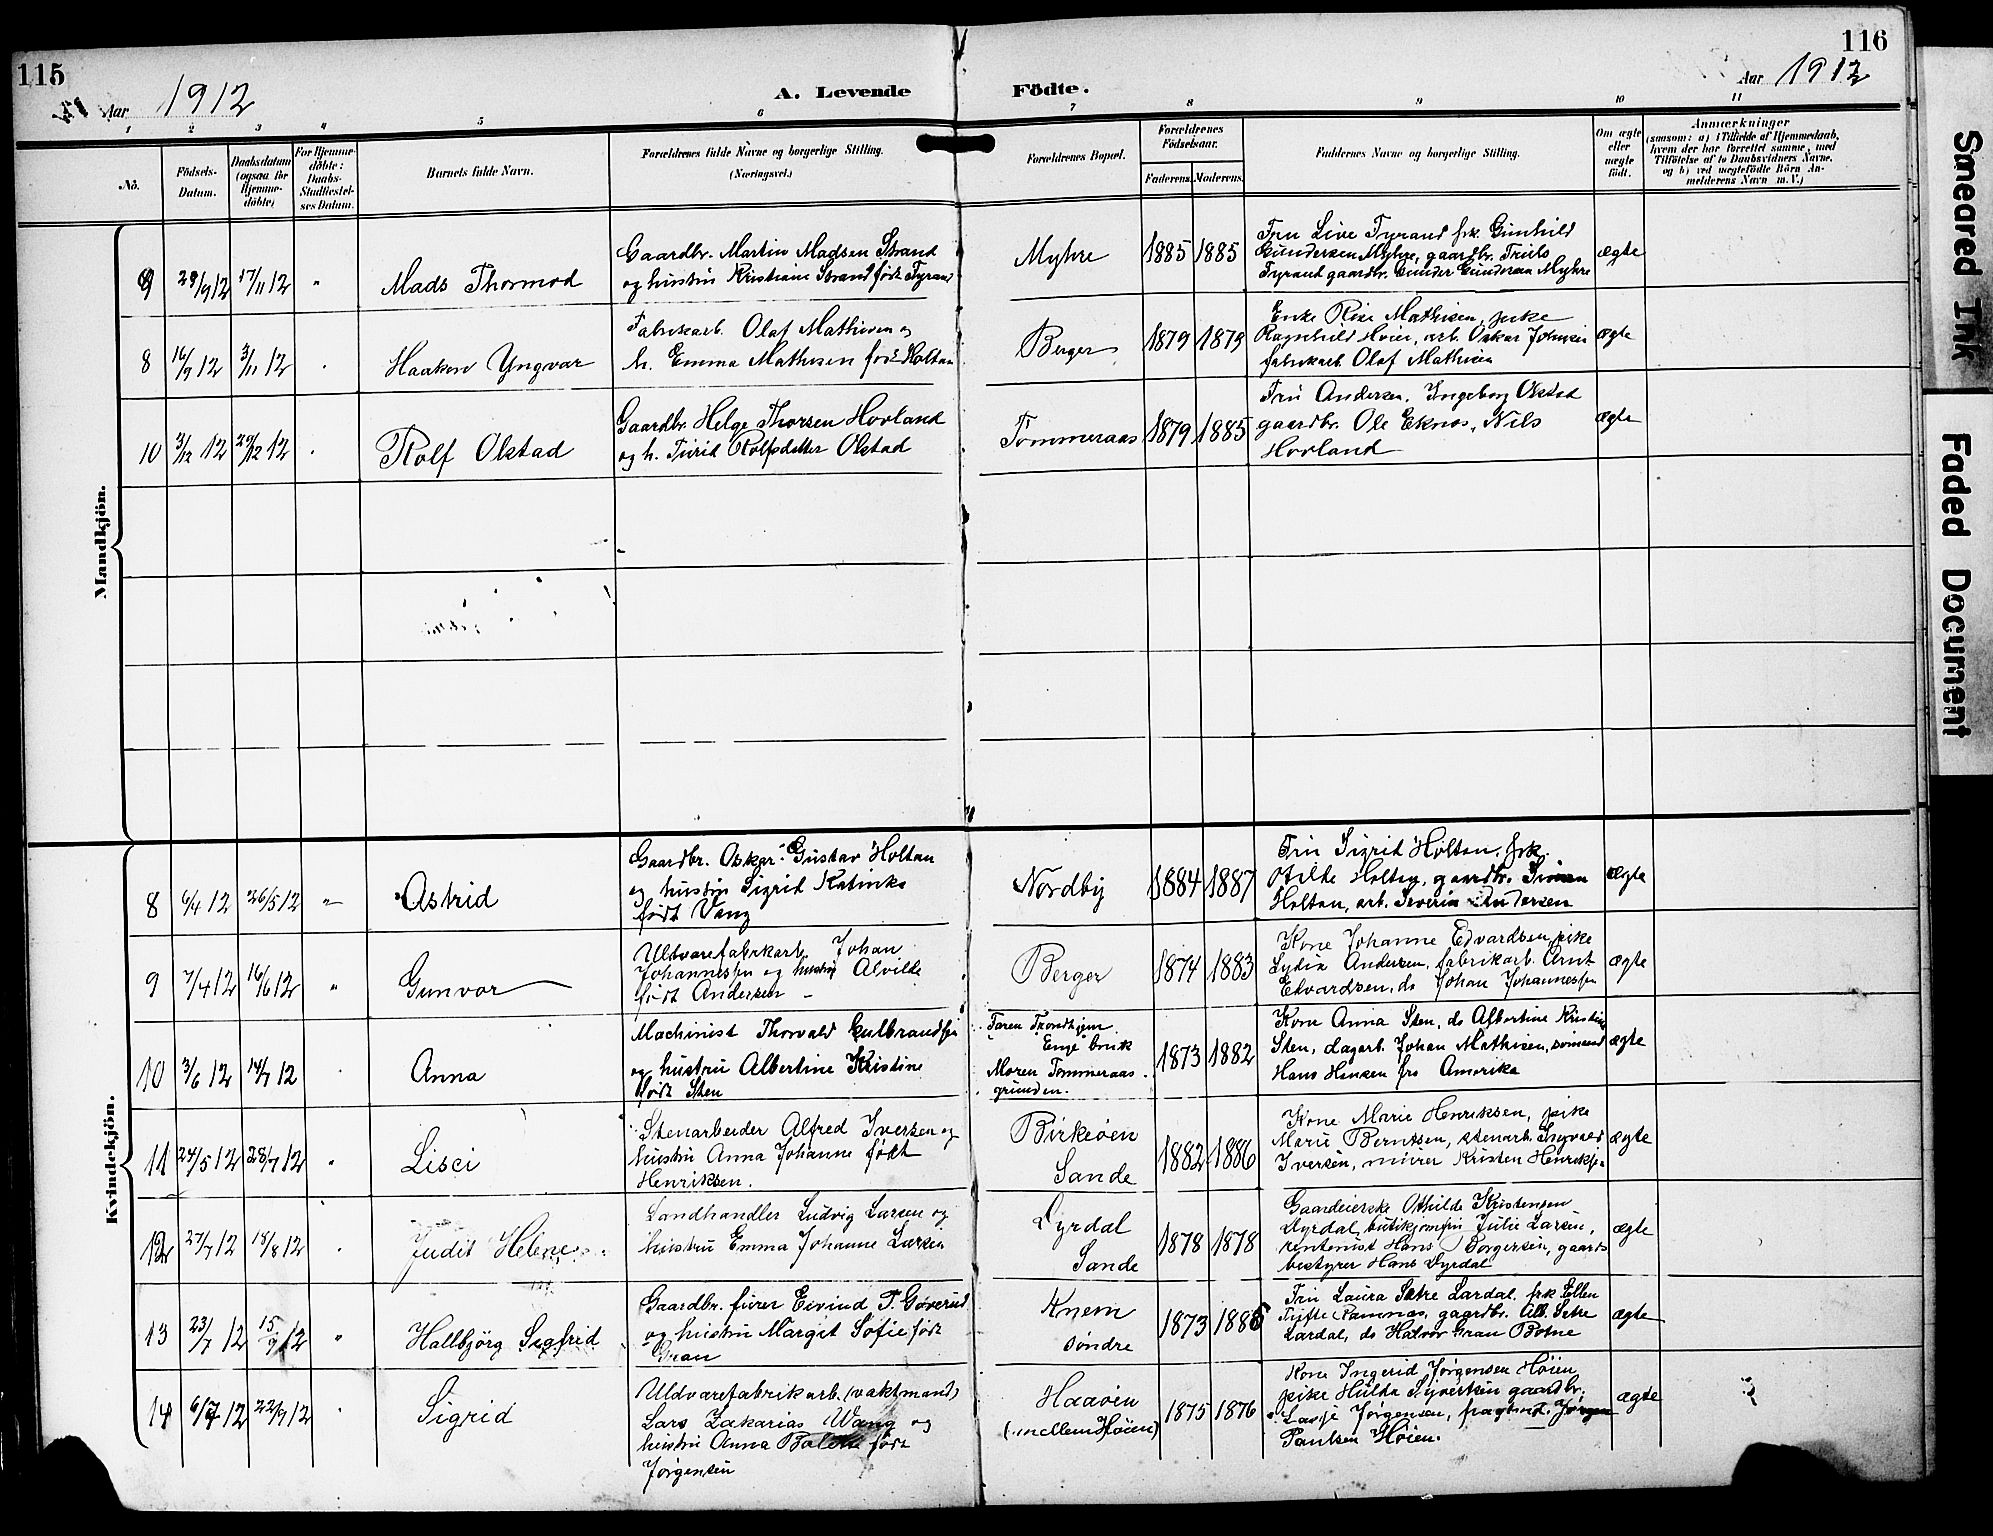 115
Aar 1912
A. Levende Födte.
116
Aar 1912
1 2 3 4 5 6 7 8 9 10 11
No.
Födsels-Datum.
Daabsdatum (ogsaa for Hjemmedöbte)
For Hjemmedöbte: Daabs-Stadfæstelses Datum.
Barnets fulde Navn.
Forældrenes fulde Navne og borgerlige Stilling. (Næringsvei.)
Forældrenes Bopæl.
Forældrenes Födselsaar.
Faderens. Moderens.
Faddernes Navne og borgerlige Stilling.
Om ægte eller uægte födt.
Anmærkninger
(saasom: a) i Tilfælde af Hjemmedaab, hvem der har forrettet samme, med Tilföielse af to Daabsvidners Navne, og b) ved uægtefödte Börn Anmelderens Navn m. V.)
Mandkjön.
9 29/9 12 17/11 12 " Mads Thormod
Gaardbr. Martin Madsen Strand
og hustru Kristiane Strand født Tyrand
Myhre 1885 1885
Fru Live Tyrand frk. Gunhild
Gundersen Myhre, gaardbr. Truls
Tyrand gaardbr. Gunder Gundersen Myhre
ægte
8 16/9 12 3/11 12 Haakon Yngvar
Fabrikarb. Olaf Mathisen og
h. Emma Mathisen født Holtan
Berger 1879 1879
Enke Rise Mathisen, pike
Ragnhild Høier, arb. Oskar Johnsen
fabrikarb. Olaf Mathisen
ægte
10 3/12 12 29/12 12 Rolf Olstad
Gaardbr. Helge Thorsen Hovland
og h. Turid Rolfsdatter Olstad
Tømmeraas 1879 1885
Fru Andersen, Ingeborg Olstad
gaardbr. Ole Eknes, Nils
Hovland
ægte
Kvindekjön.
8 6/4 12 26/5 12 " Astrid
Gaardbr. Oskar Gustav Holtan
og hustru Sigrid Katinka
født Vang
Nordby 1884 1887
Fru Sigrid Holtan, frk.
Otilde Holtan, gaardbr. Simen
Holtan, arb. Severin Andersen
ægte
9 7/4 12 16/6 12 " Gunvor
Uldvarefabrikarb. Johan
Johannessen og hustru Alvilde
født Andersen
Berger 1874 1883
Kone Johanne Edvardsen, pike
Lydia Andersen, fabrikarb. Arnt
Edvardsen, do Johan Johannessen
ægte
10 3/6 12 14/7 12 Anna
Machinist Thorvald Gulbrandsen
og hustru Albertine Kristine
født Sten
Faren Trondhjem
Enge bruk
Moren Tømmeraas
grunden.
1873 1882
Kone Anna Sten, do Albertine Kristine
Sten, dagarb. Johan Mathisen, sømand
Hans Hansen fra Amerika
ægte
11 24/5 12 28/7 12 " Lisci
Stenarbeider Alfred Iversen og
hustru Anna Johanne født
Henriksen.
Birkeøen
Sande
1882 1886
Kone Marie Henriksen, pike
Marie Berntsen, stenarb. Sigvald
Iversen, murer Kristen Henriksen
ægte
12 27/7 12 18/8 12 Judit Helene
Landhandler Ludvig Larsen og
hustru Emma Johanne Larsen
Dyrdal
Sande
1878 1878
Gaardeierske Othilde Kristensen
Dyrdal, butikjomfru Julie Larsen,
rentenist Hans Borgersen, gaards
bestyrer Hans Dyrdal
ægte
13 23/7 12 15/9 12 " Hallbjörg Sigfrid
Gaardbr. furer Eivind T. Gøverud
og hustru Margit Sofie født
Gran
Knem
søndre
1873 1886
Fru Laura Sætre Lardal, frk Ellen
Tufte Ramnas, gaardbr. Alb. Sætre
Lardal, do Halvor Gran Botne
ægte
14 6/7 12 22/9 12 Sigrid
Uldvarefabrikarb. (vaktmand)
Lars Zakarias Wang og
hustru Anna født
Jørgensen
Haaøen
(mellem Høien)
1875 1876
Kone Ingerid Jørgensen Høien,
pike Hulda Syvertsen gaardbr.
Jørgensen, Jørgen
Paulsen Høien.
ægte
Smeared Ink
Faded Document